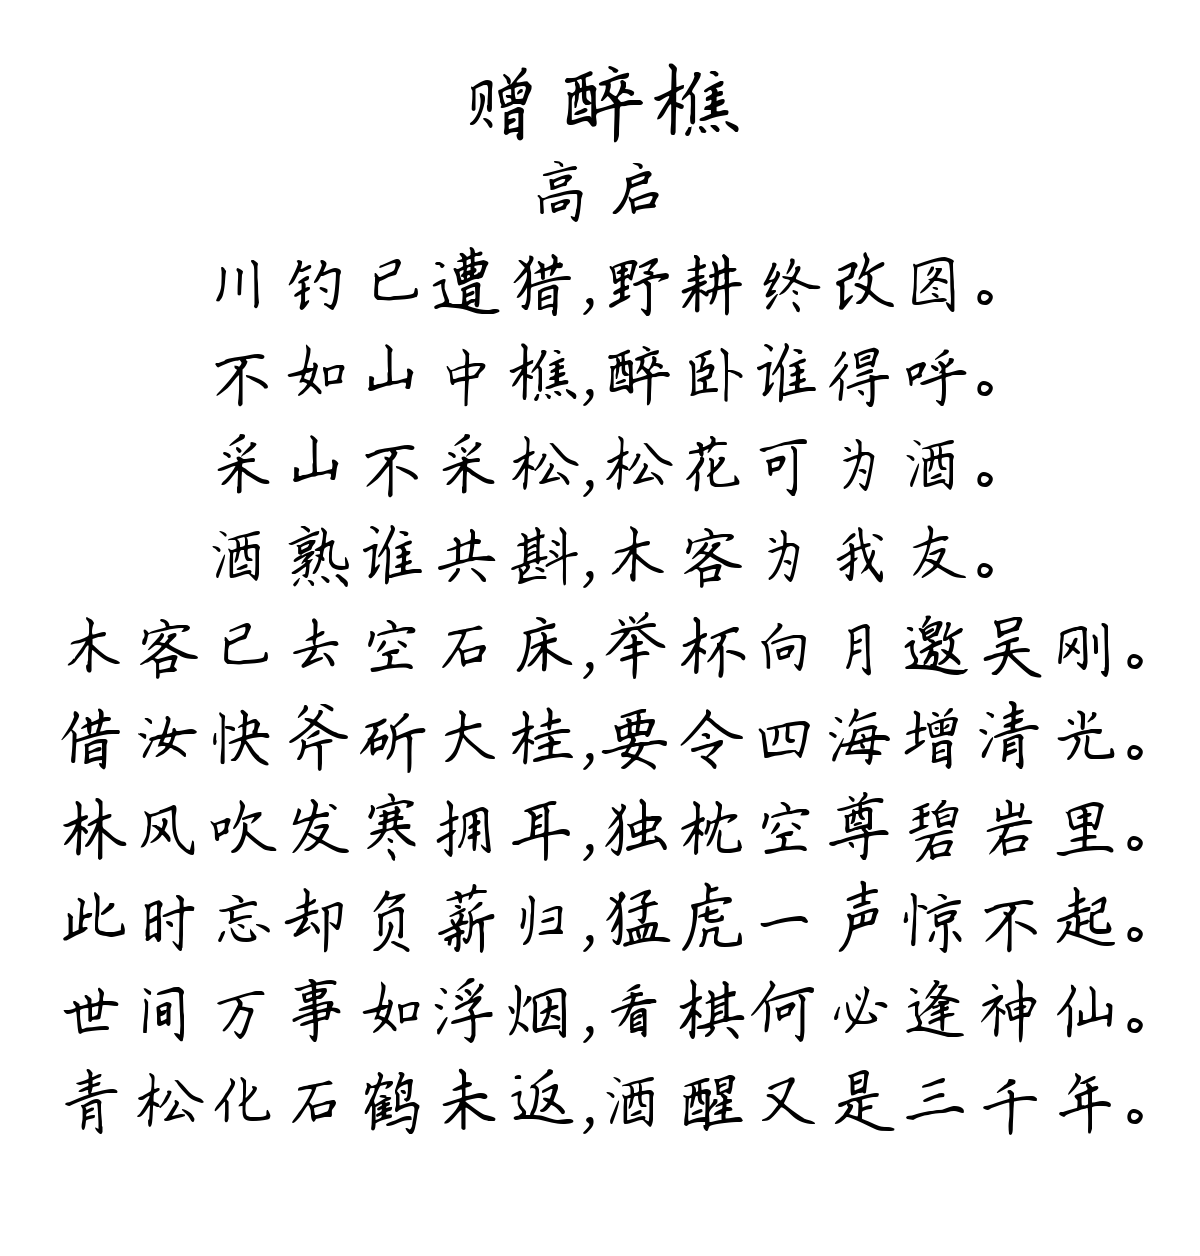 赠醉樵
高启
川钓已遭猎,野耕终改图。
不如山中樵,醉卧谁得呼。
采山不采松,松花可为酒。
酒熟谁共斟,木客为我友。
木客已去空石床,举杯向月邀吴刚。
借汝快斧斫大桂,要令四海增清光。
林风吹发寒拥耳,独枕空尊碧岩里。
此时忘却负薪归,猛虎一声惊不起。
世间万事如浮烟,看棋何必逢神仙。
青松化石鹤未返,酒醒又是三千年。